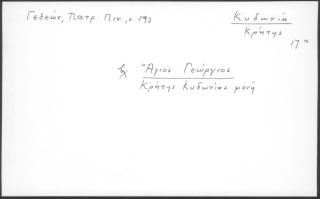 Γεδεών, Πατρ. Πιν., σ. 593
Κυδωνία
Κρήτης
17ος
Ἅγιος Γεώργιος
Κρήτης Κυδωνίας μονή